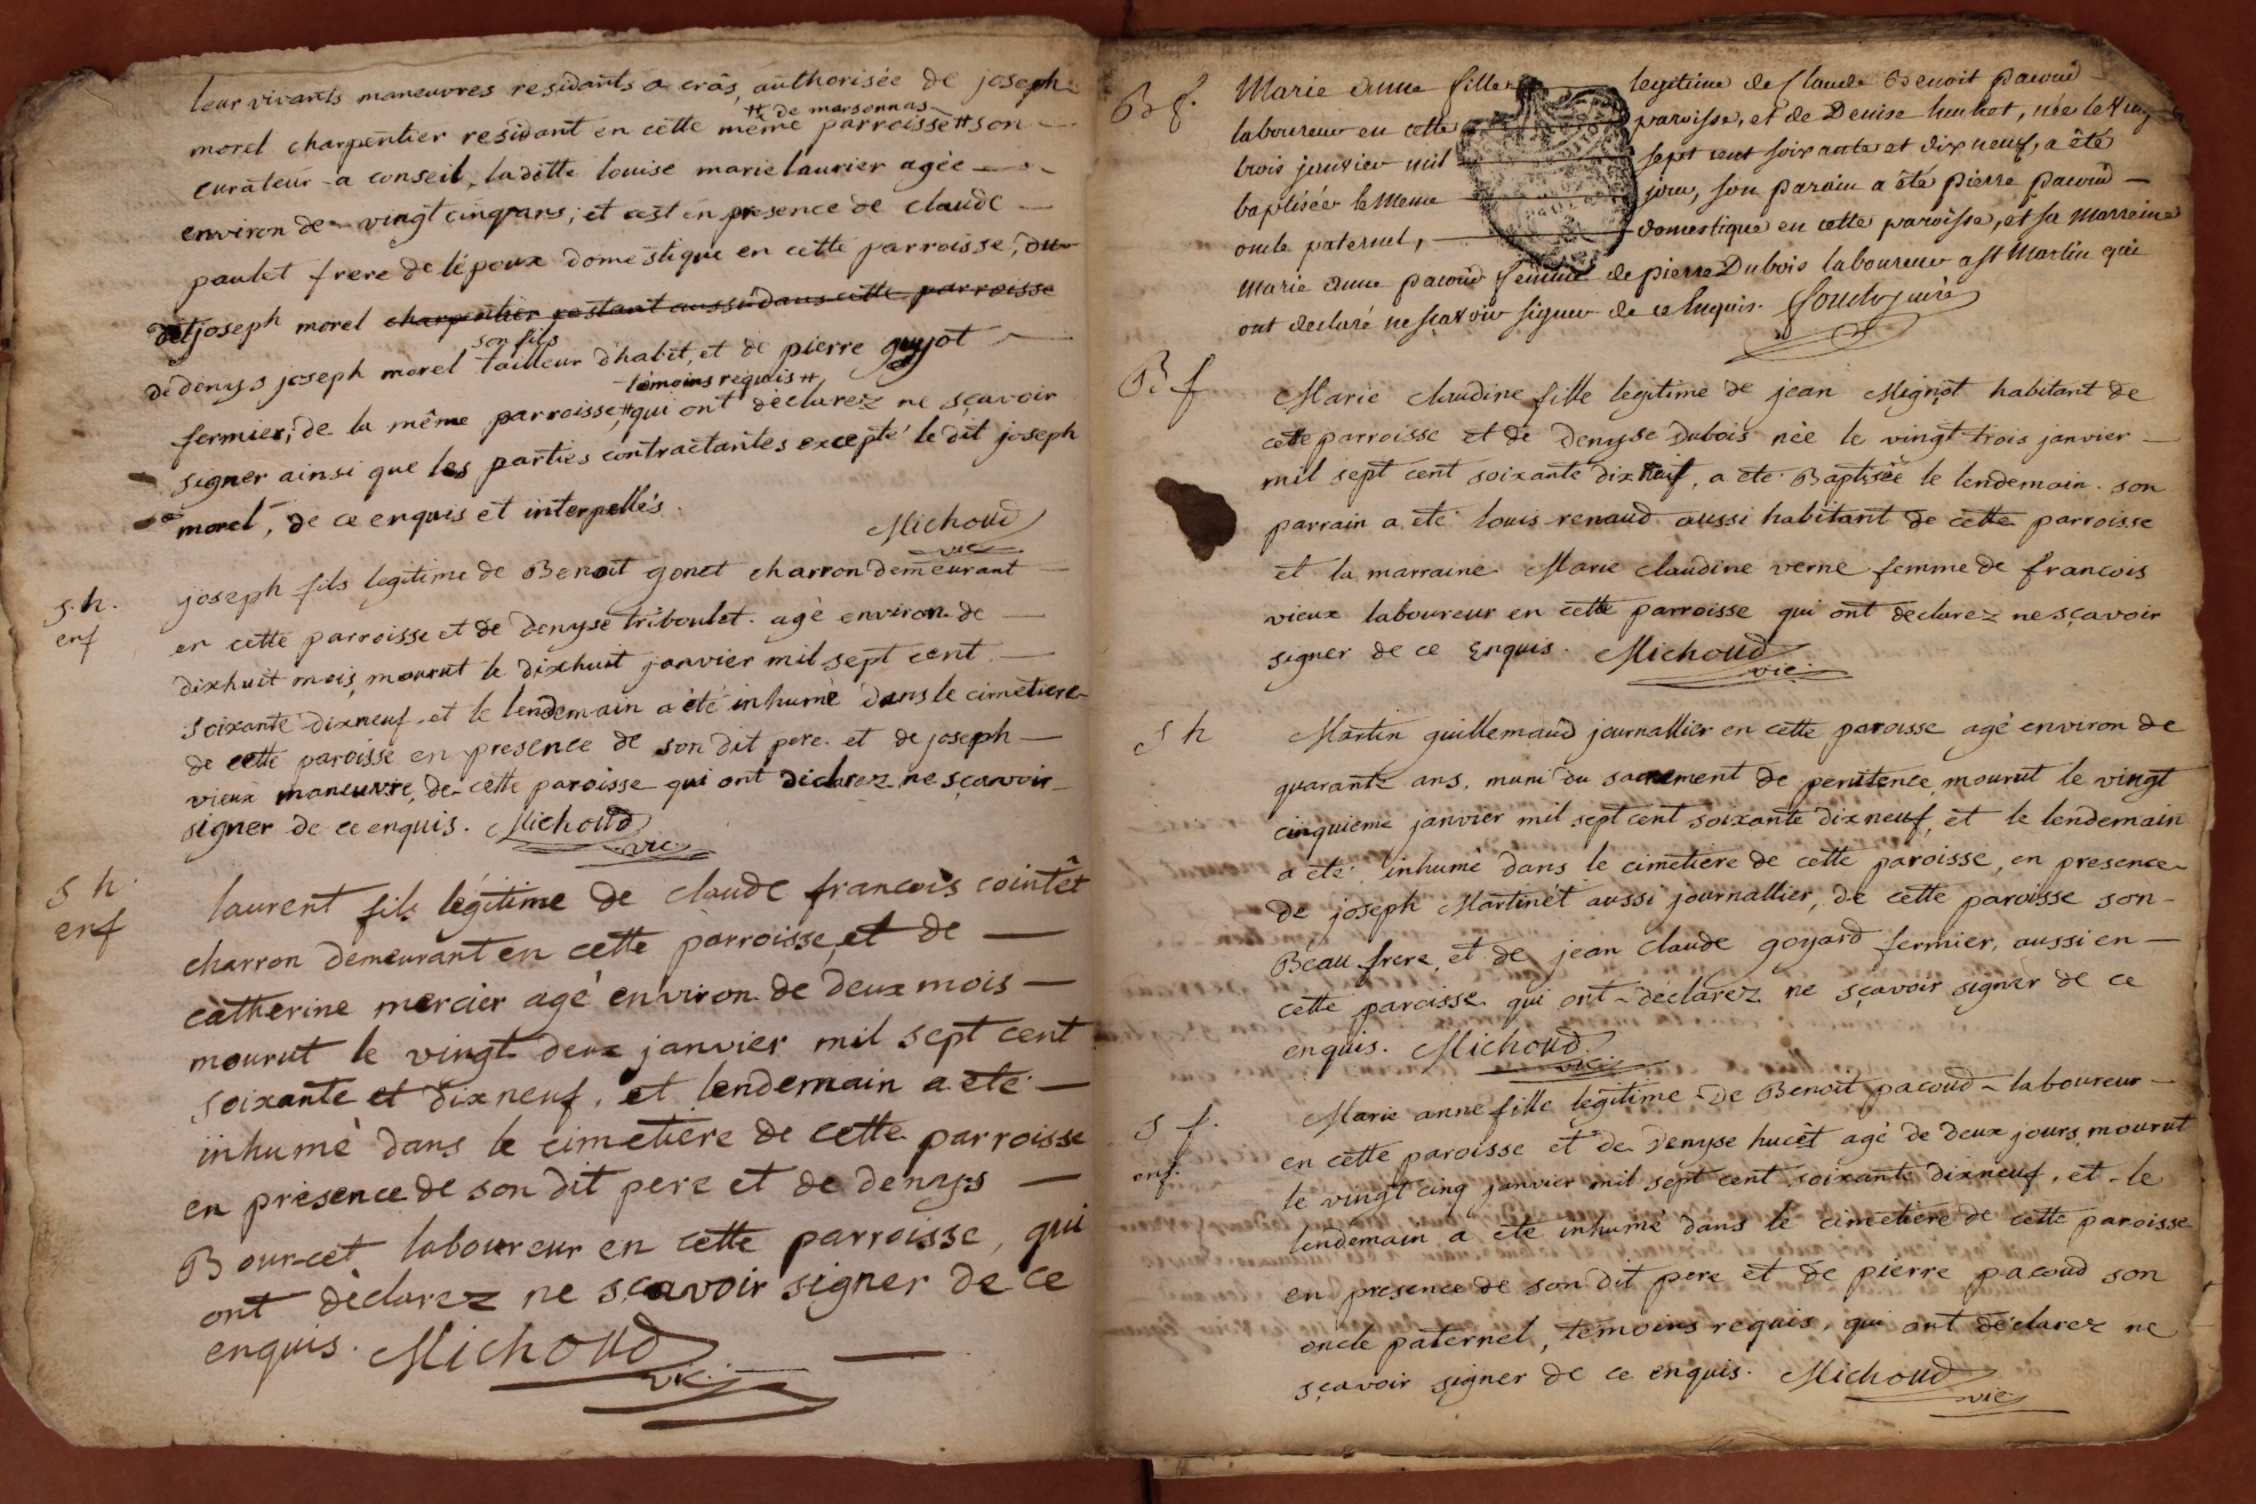 leur vivants maneuvres residants a crâs, authorisée de joseph
# de marsonnas
morel charpentier residant en cette même parroisse # son
curateur a conseil, laditte louise marie laurier agée
environ de vingt cinq ans; et cest en presence de claude
paulet frere de lépoux domestique en cette parroisse, du
dit joseph morel charpentier restant aussi dans cette parroisse
son fils
de denys joseph morel tailleur d'habit, et de pierre guyot
témoins requis #
fermier, de la même parroisse, # qui ont déclarez ne sçavoir
signer ainsi que les parties contractantes excepté le dit joseph
morel, de ce enquis et interpellés.
Michoud
vic
s. h.
enf
joseph fils legitime de Benoit gonet charron demeurant
en cette parroisse et de denyse triboulet. agé environ de
dixhuit mois, mourut le dixhuit janvier mil sept cent
soixante dixneuf. et le lendemain a été inhumé dans le cimetiere
de cette paroisse en presence de son dit pere. et de joseph
vieux maneuvre, de cette paroisse qui ont déclarez ne sçavoir
signer de ce enquis. Michoud
vic.
s h.
enf
laurent fils légitime de claude francois cointet
charron demeurant en cette parroisse, et de
catherine mercier agé environ de deux mois
mourut le vingt deux janvier mil sept cent
soixante et dixneuf, et lendemain a eté
inhumé dans le cimetiere de cette parroisse
en presence de son dit pere et de denys
Bourcet laboureur en cette parroisse, qui
ont déclarez ne sçavoir signer de ce
enquis. Michoud
vic.
B f.
Marie anne fille legitime de Claude Benoit pacoud
laboureur en cette paroisse, et de Denise huchet, née le ving
trois janvier mil sept cent soixante et dix neuf, a été
baptisée le meme jour, son parain a été pierre pacoud
oncle paternel, domestique en cette paroisse, et sa marreine
marie anne pacoud femme de pierre Dubois laboureur a st Martin qui
ont declaré ne sçavoir signer de ce enquis.
B f
Marie claudine fille legitime de jean Mignot habitant de
cette parroisse et de denyse Dubois née le vingt-trois janvier
mil sept cent soixante dixneuf, a eté Baptisée le lendemain. son
parrain a eté louis renaud aussi habitant de cette parroisse
et la marraine Marie claudine verne femme de francois
vieux laboureur en cette parroisse qui ont declarez ne sçavoir
signer de ce Enquis. Michoud
vic.
s h
Martin guillemaud journallier en cette paroisse agé environ de
quarante ans, muni du sacrement de penitence, mourut le vingt
cinquieme janvier mil sept cent soixante dixneuf, et le lendemain
a eté inhumé dans le cimetiere de cette paroisse, en presence
de joseph Martinét aussi journallier, de cette paroisse son
Beau frere, et de jean claude goyard fermier, aussi en
cette paroisse qui ont déclarez ne sçavoir signer de ce
enquis. Michoud
vic.
s f.
enf.
Marie anne fille legitime de Benoit pacoud laboureur
en cette paroisse et de Denyse hucêt agé de deux jours, mourut
le vingt cinq janvier mil sept cent soixante dixneuf, et le
lendemain a eté inhumé dans le cimetiere de cette paroisse
en presence de son dit pere et de pierre pacoud son
oncle paternel, témoins requis, qui ont déclarez ne
sçavoir signer de ce enquis. Michoud
vic